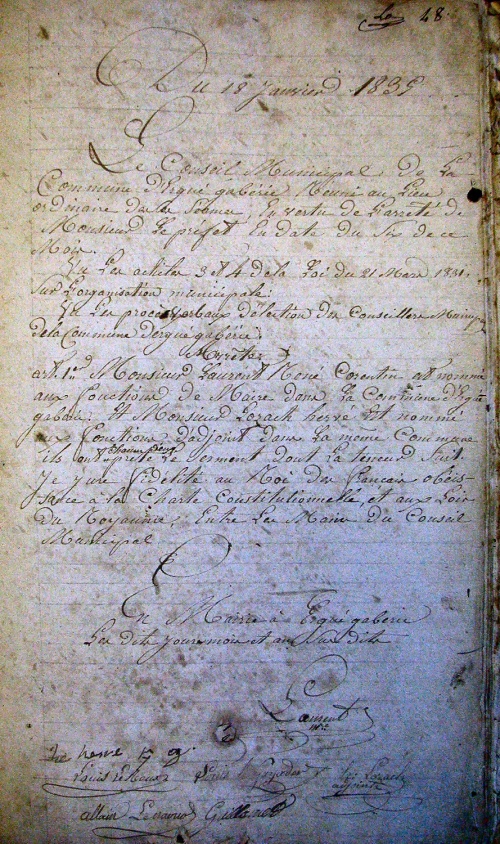 48.
Du 18 janvier 1835
Le Conseil Municipal De La
Commune d'Ergué gabéric Reuni au Lieu
ordinaire de sa En vertu de L'arreté de
Monsieur Le prefet En date du Six de ce
Mois.
Vu Les articles 3 et 4 de la Loi du 21 Mars 1831,
sur L'organisation municipale:
Vu Les procès verbaux d'élection des Conseillers
de la Commune d'ergué gabéric:
Arrête
art. 1er Monsieur Laurent René Corentin est nommé
aux fonctions de Maire dans La Commune d'Ergué
gabéric: Et Monsieur Lozach hervé Est nommé
aux fonctions d'adjoint dans La même Commune
ils ont prêté Le serment dont La teneur Suit
Je jure fidelité au Roi des francais obéis
sance à la Charte Constitutionnelle et aux Loix
du Royaume, Entre Les Mains du Conseil
Municipal
En Mairie à Ergué gabéric
Les dits jour mois et an Sus dits
Laurent
hervé
Lozach
adjoint
allain